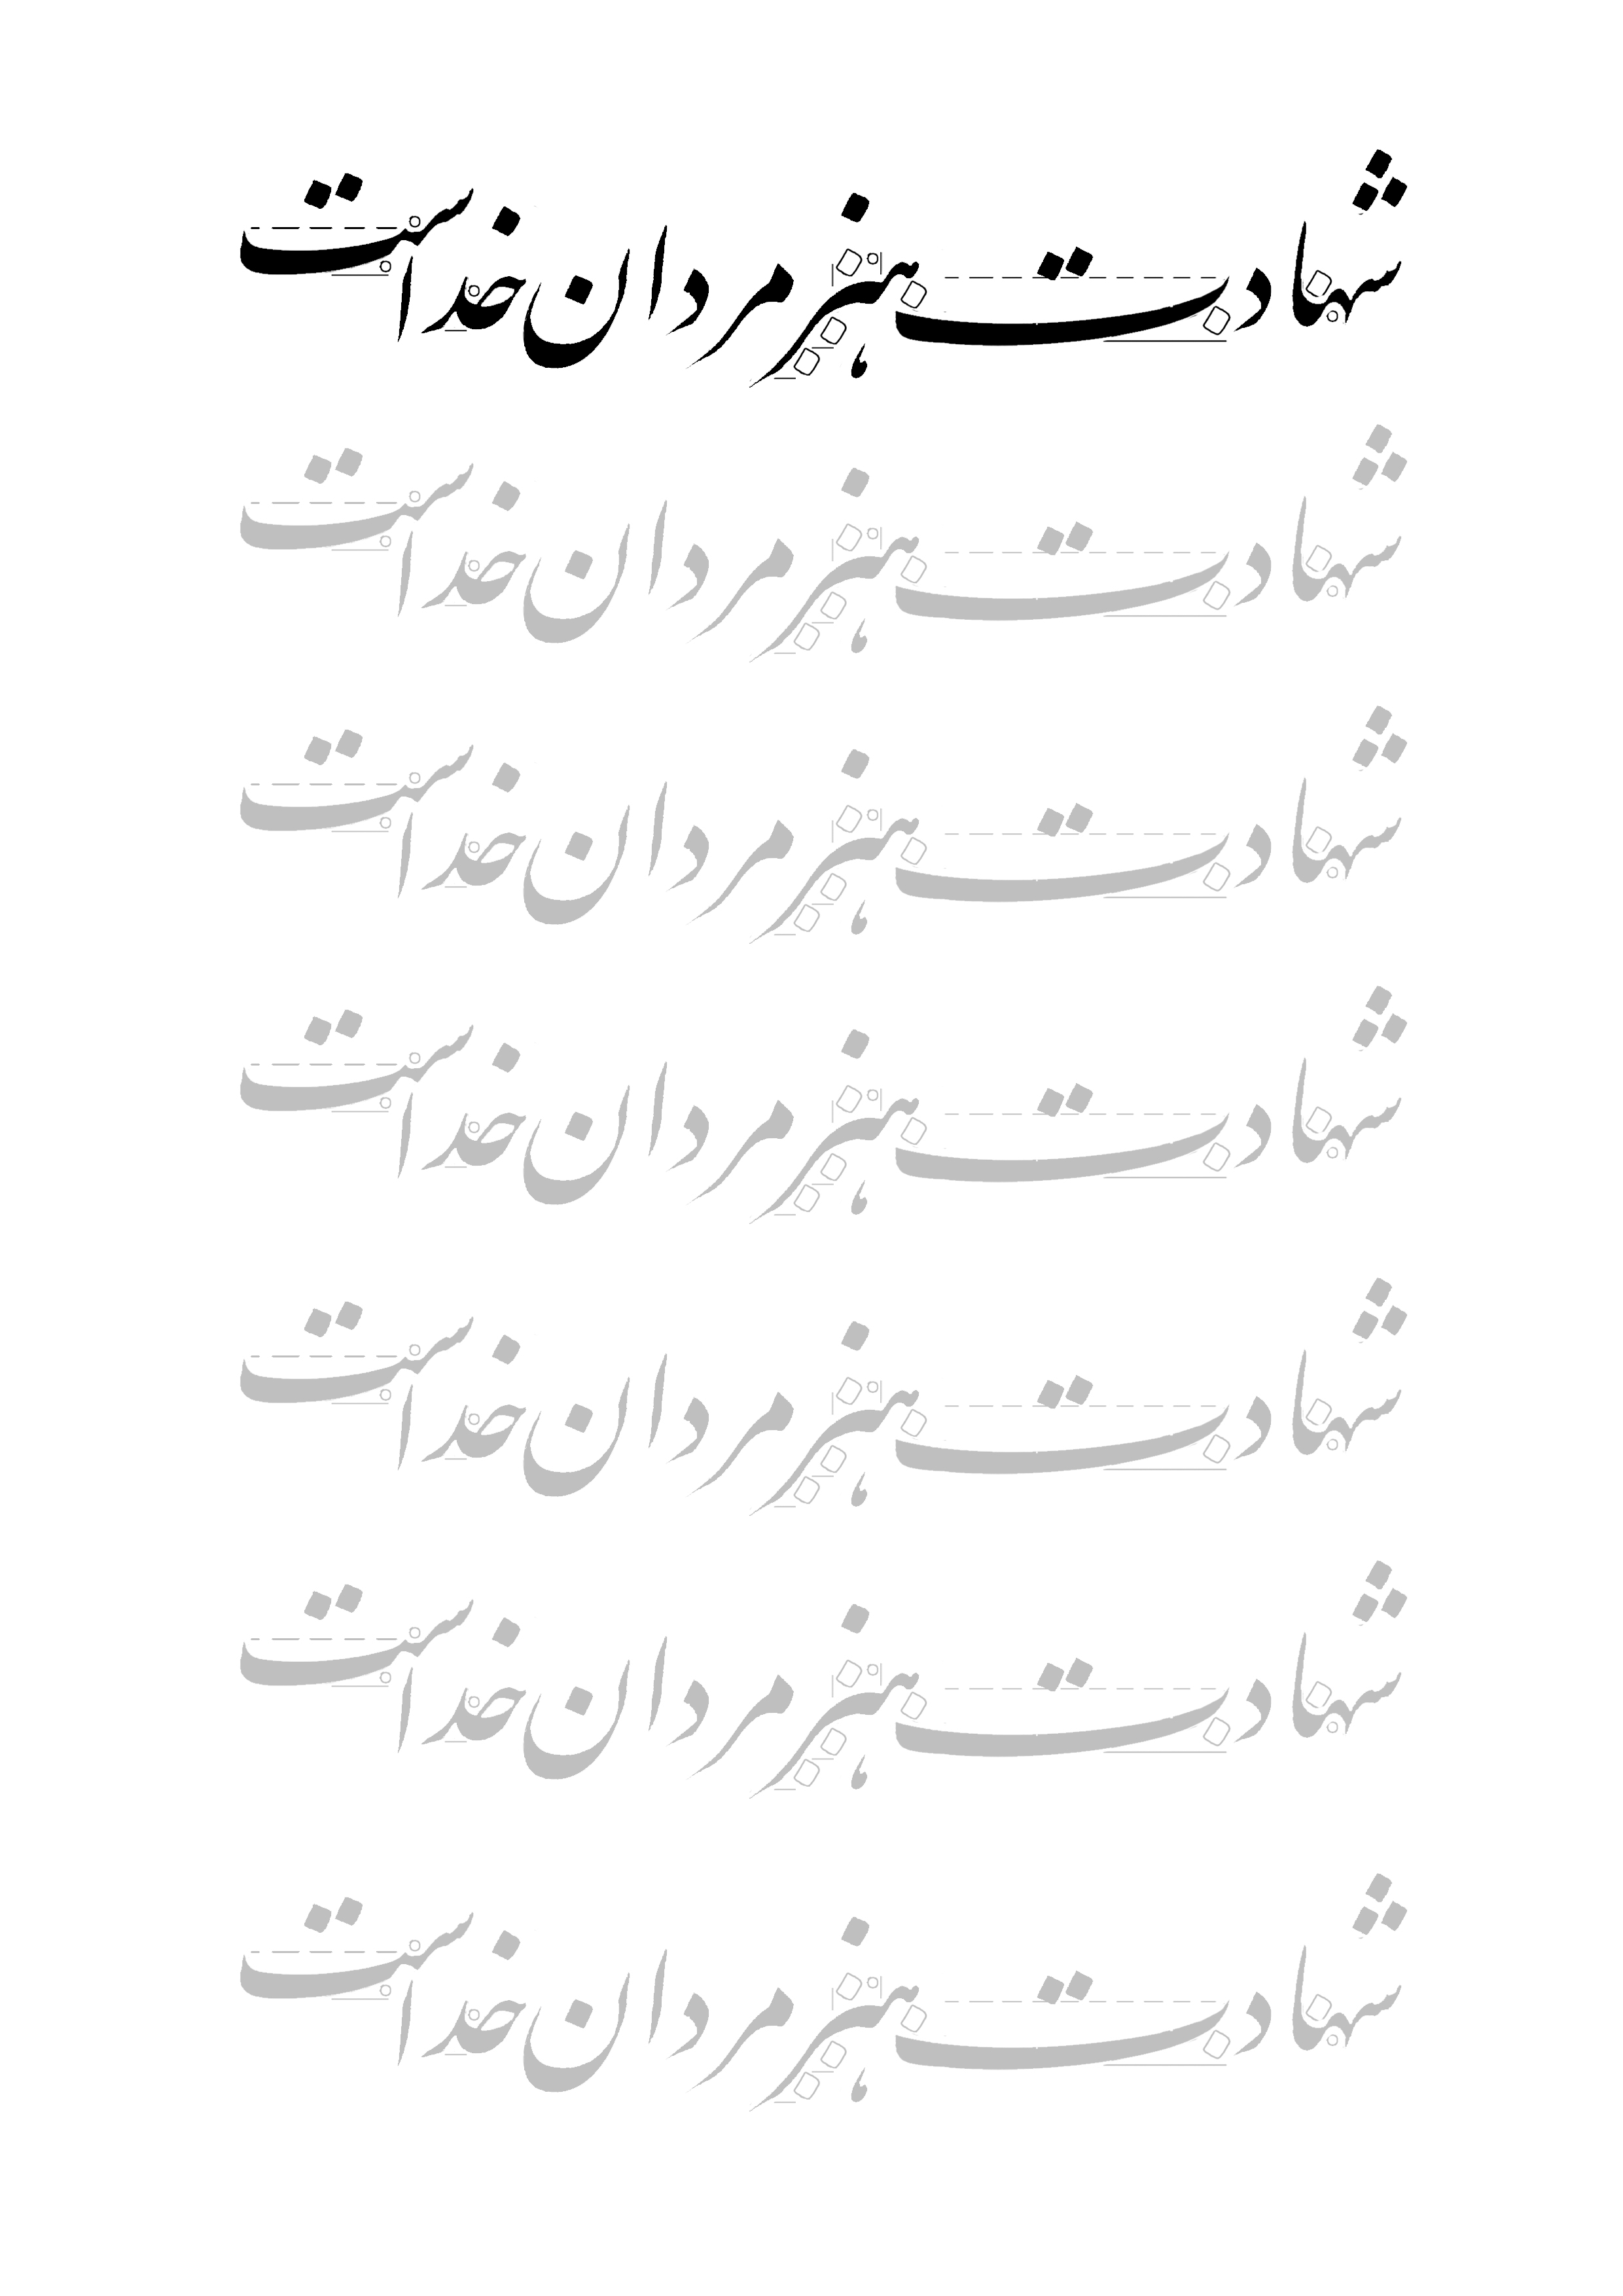 شهادت هنر مردان خداست
شهادت هنر مردان خداست
شهادت هنر مردان خداست
شهادت هنر مردان خداست
شهادت هنر مردان خداست
شهادت هنر مردان خداست
شهادت هنر مردان خداست